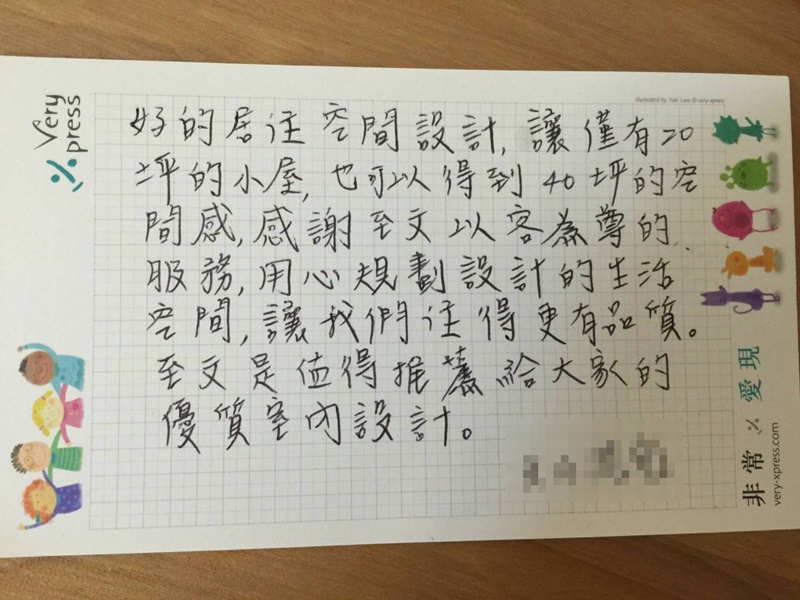 好的居住空間設計,讓僅有20
坪的小屋,也可以得到40坪的空
間感,感謝至文以客為尊的
服務,用心規劃設計的生活
空間,讓我們住得更有品質。
至文是值得推薦給大家的
優質室內設計。
Very
Xpress
illustrated by Yuki Luo © very-xpress
非常 X 愛現
very-xpress.com